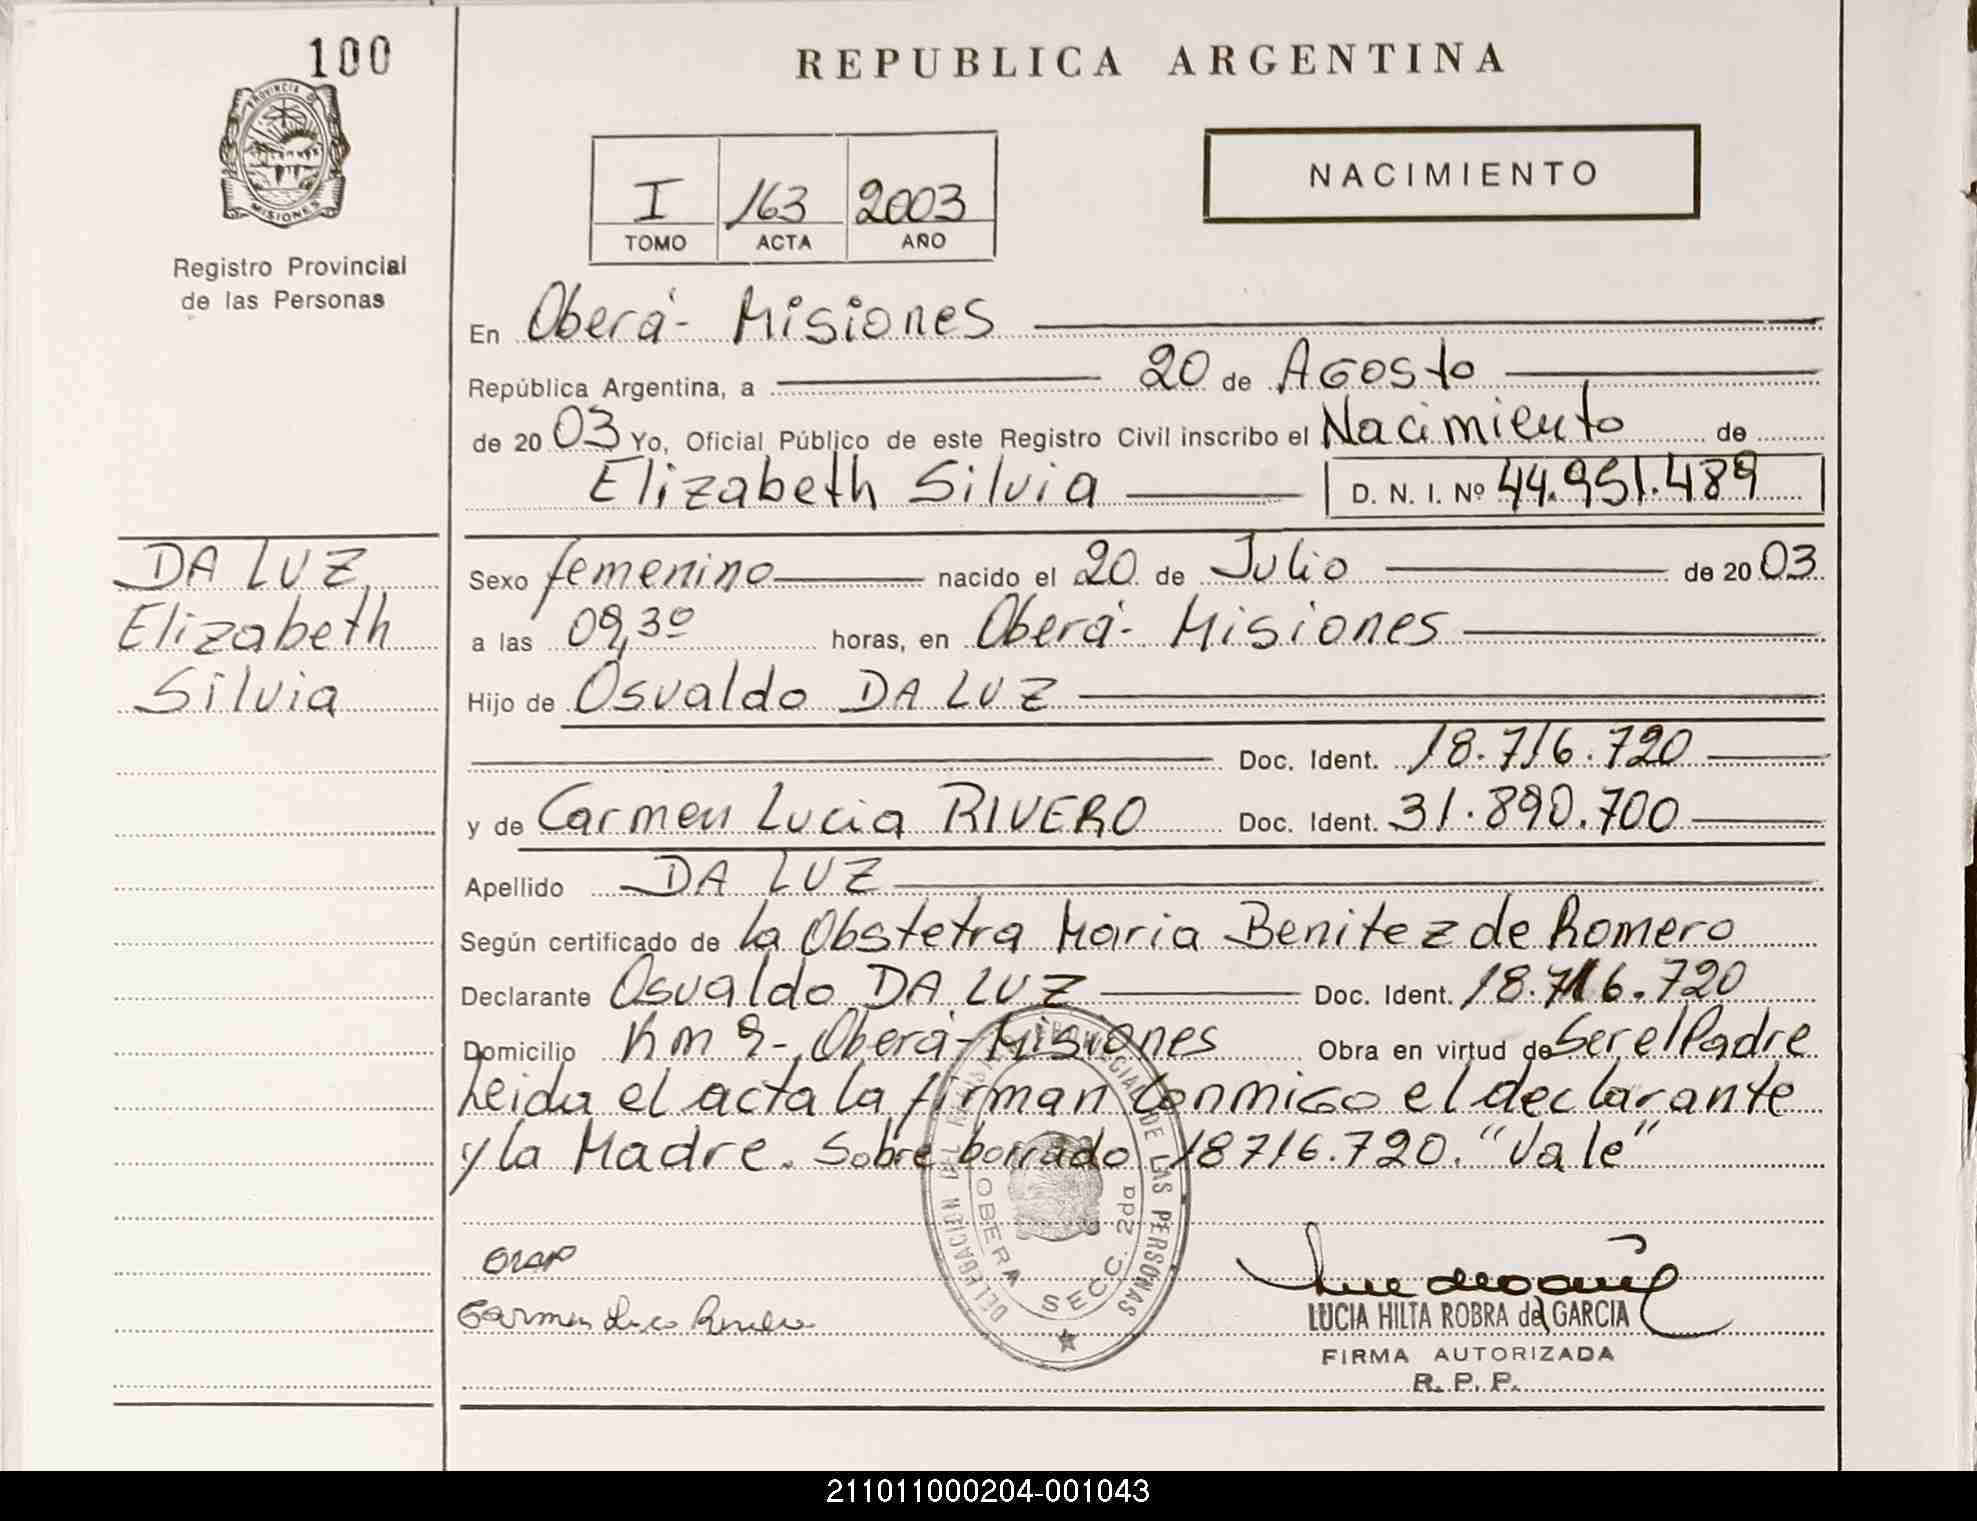 100
PROVINCIA DE
MISIONES
Registro Provincial
de las Personas
REPUBLICA ARGENTINA
I 163 2003
TOMO ACTA AÑO
NACIMIENTO
En Oberá- Misiones
República Argentina, a 20 de Agosto
de 2003 Yo, Oficial Público de este Registro Civil inscribo el Nacimiento de
Elizabeth Silvia D. N. I. Nº 44.951.489
DA LUZ
Elizabeth
Silvia
Sexo femenino nacido el 20 de Julio de 2003
a las 09,30 horas, en Oberá- Misiones
Hijo de Osvaldo DA LUZ
Doc. Ident. 18.716.720
y de Carmen Lucia RIVERO Doc. Ident. 31.890.700
Apellido DA LUZ
Según certificado de la Obstetra Maria Benitez de Romero
Declarante Osvaldo DA LUZ Doc. Ident. 18.716.720
Domicilio Km 9-, Oberá- Misiones Obra en virtud de Ser el Padre
Leida el acta la firman Conmigo el declarante
y la Madre. Sobre borrado 18716.720. "Vale"
DELEGACION DEL REGISTRO PROVINCIAL DE LAS PERSONAS
OBERA SECC. 2da
Carmen
LUCIA HILTA ROBRA de GARCIA
FIRMA AUTORIZADA
R. P. P.
211011000204-001043